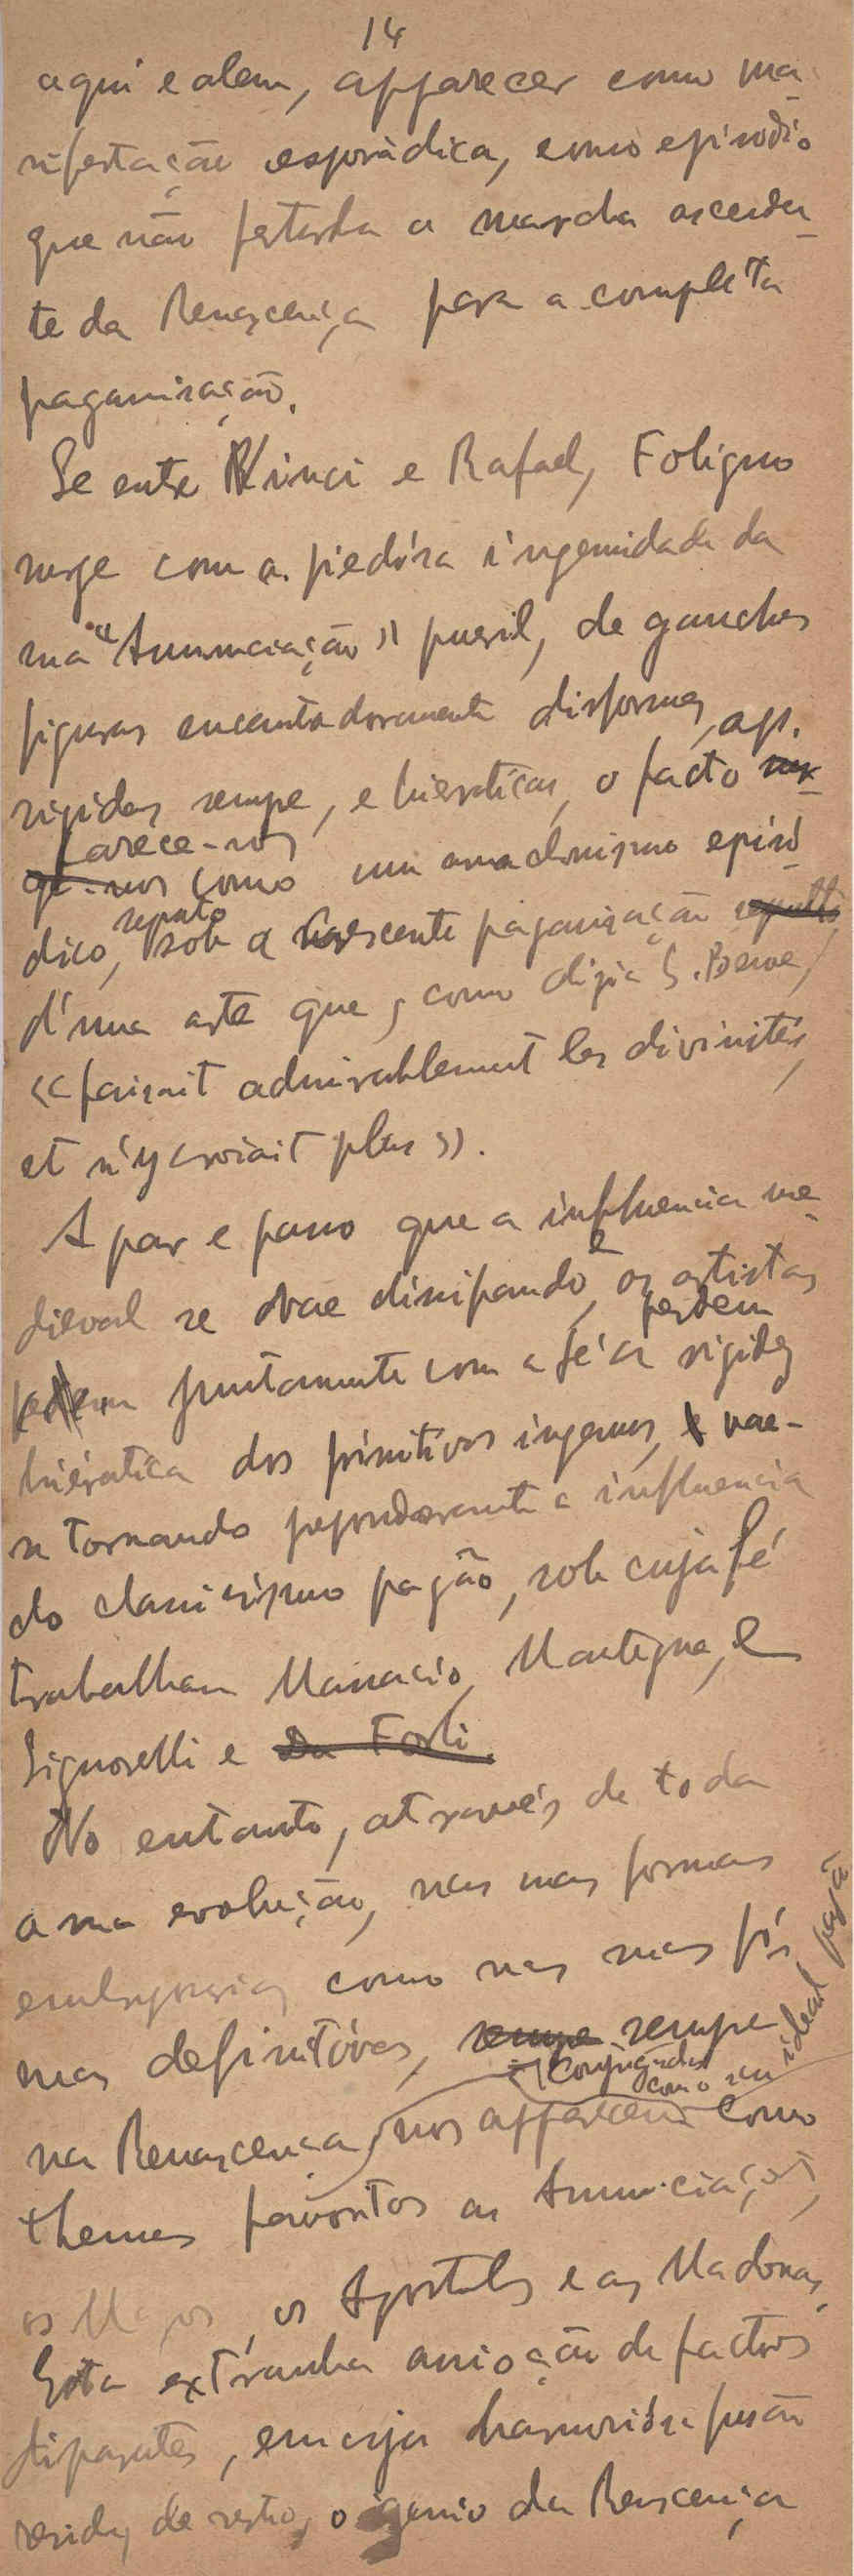 14
aqui e alem, apparecer como ma-
nifestação esporádica, como episodio
que não perturba a marcha ascenden-
te da Renascença para a completa
paganisação.
Se entre Vinci e Rafael, Foligno
surge com a piedósa ingenuidade da
sua "Annunciação" pueril, de gauches
figuras encantadoramente disformes,
rigidas sempre, e hieraticas, o facto ap-
parece-nos como um anachronismo episó-
dico, sob a crescente paganização
d'uma arte que, como dizia S. Beuve,
«faisait admirablement les divinités,
et n'y croiait plus».
A par e passo que a influencia me-
dieval se vae dissipando, e os artistas
perdem juntamente com a fé a rigidez
hiératica dos primitivos ingenuos, vae-
se tornando preponderante a influencia
do classicismo pagão, sob cuja fé
trabalham Masaccio, Mantegna, e
Signorelli e Da Forli.
No entanto, através de toda
a sua evolução, nas suas formas
embryonarias como nas suas fór-
mas definitivas, sempre sempre
na Renascença, conjugadas como seu ideal pagão
nos apparecem como
themas favoritos as Annunciações,
os Magos, os Apostolos e as Madonas.
Esta extranha associação de factos
disparates, em cuja harmoniósa fusão
reside, de resto, o genio da Renascença